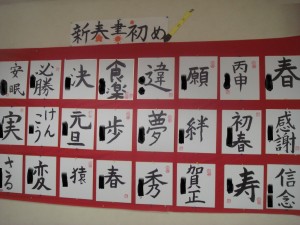 新春書初め
春
丙申
願
違
食楽
決
必勝
安眠
感謝
初春
絆
夢
歩
元旦
けんこう
実
信念
寿
賀正
秀
春
猿
変
さる